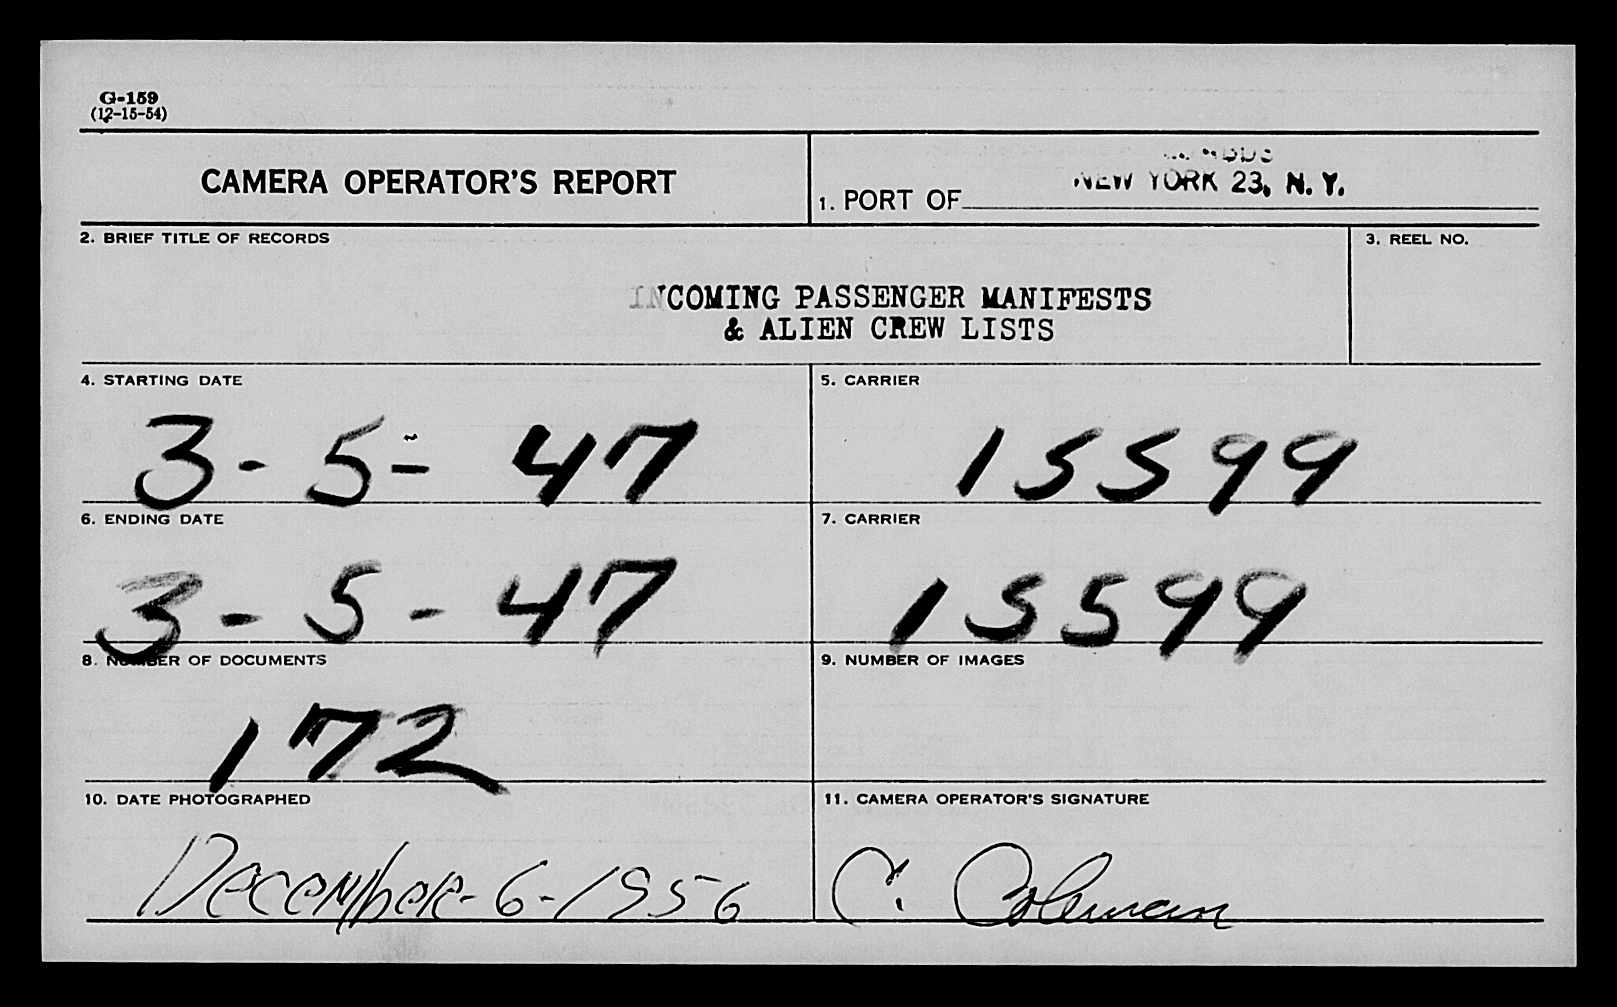 G-159
(12-15-54)
CAMERA OPERATOR'S REPORT
1. PORT OF
NEW YORK 23, N. Y.
2. BRIEF TITLE OF RECORDS
3. REEL NO.
INCOMING PASSENGER MANIFESTS
& ALIEN CREW LISTS
4. STARTING DATE
5. CARRIER
3-5-47
15599
6. ENDING DATE
7. CARRIER
3-5-47
15599
8. NUMBER OF DOCUMENTS
9. NUMBER OF IMAGES
172
10. DATE PHOTOGRAPHED
11. CAMERA OPERATOR'S SIGNATURE
December-6-1956
C. Coleman